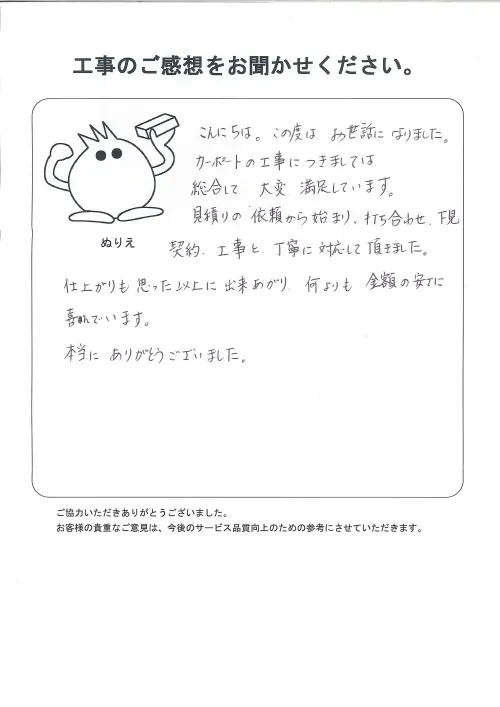 工事のご感想をお聞かせください。
こんにちは。この度は、お世話になりました。
カーポートの工事につきましては
総合して、大変、満足しています。
見積りの依頼から始まり、打ち合わせ、下見
ぬりえ
契約、工事と、丁寧に対応して頂きました。
仕上がりも思った以上に出来あがり、何よりも金額の安さに
喜んでいます。
本当にありがとうございました。
ご協力いただきありがとうございました。
お客様の貴重なご意見は、今後のサービス品質向上のための参考にさせていただきます。